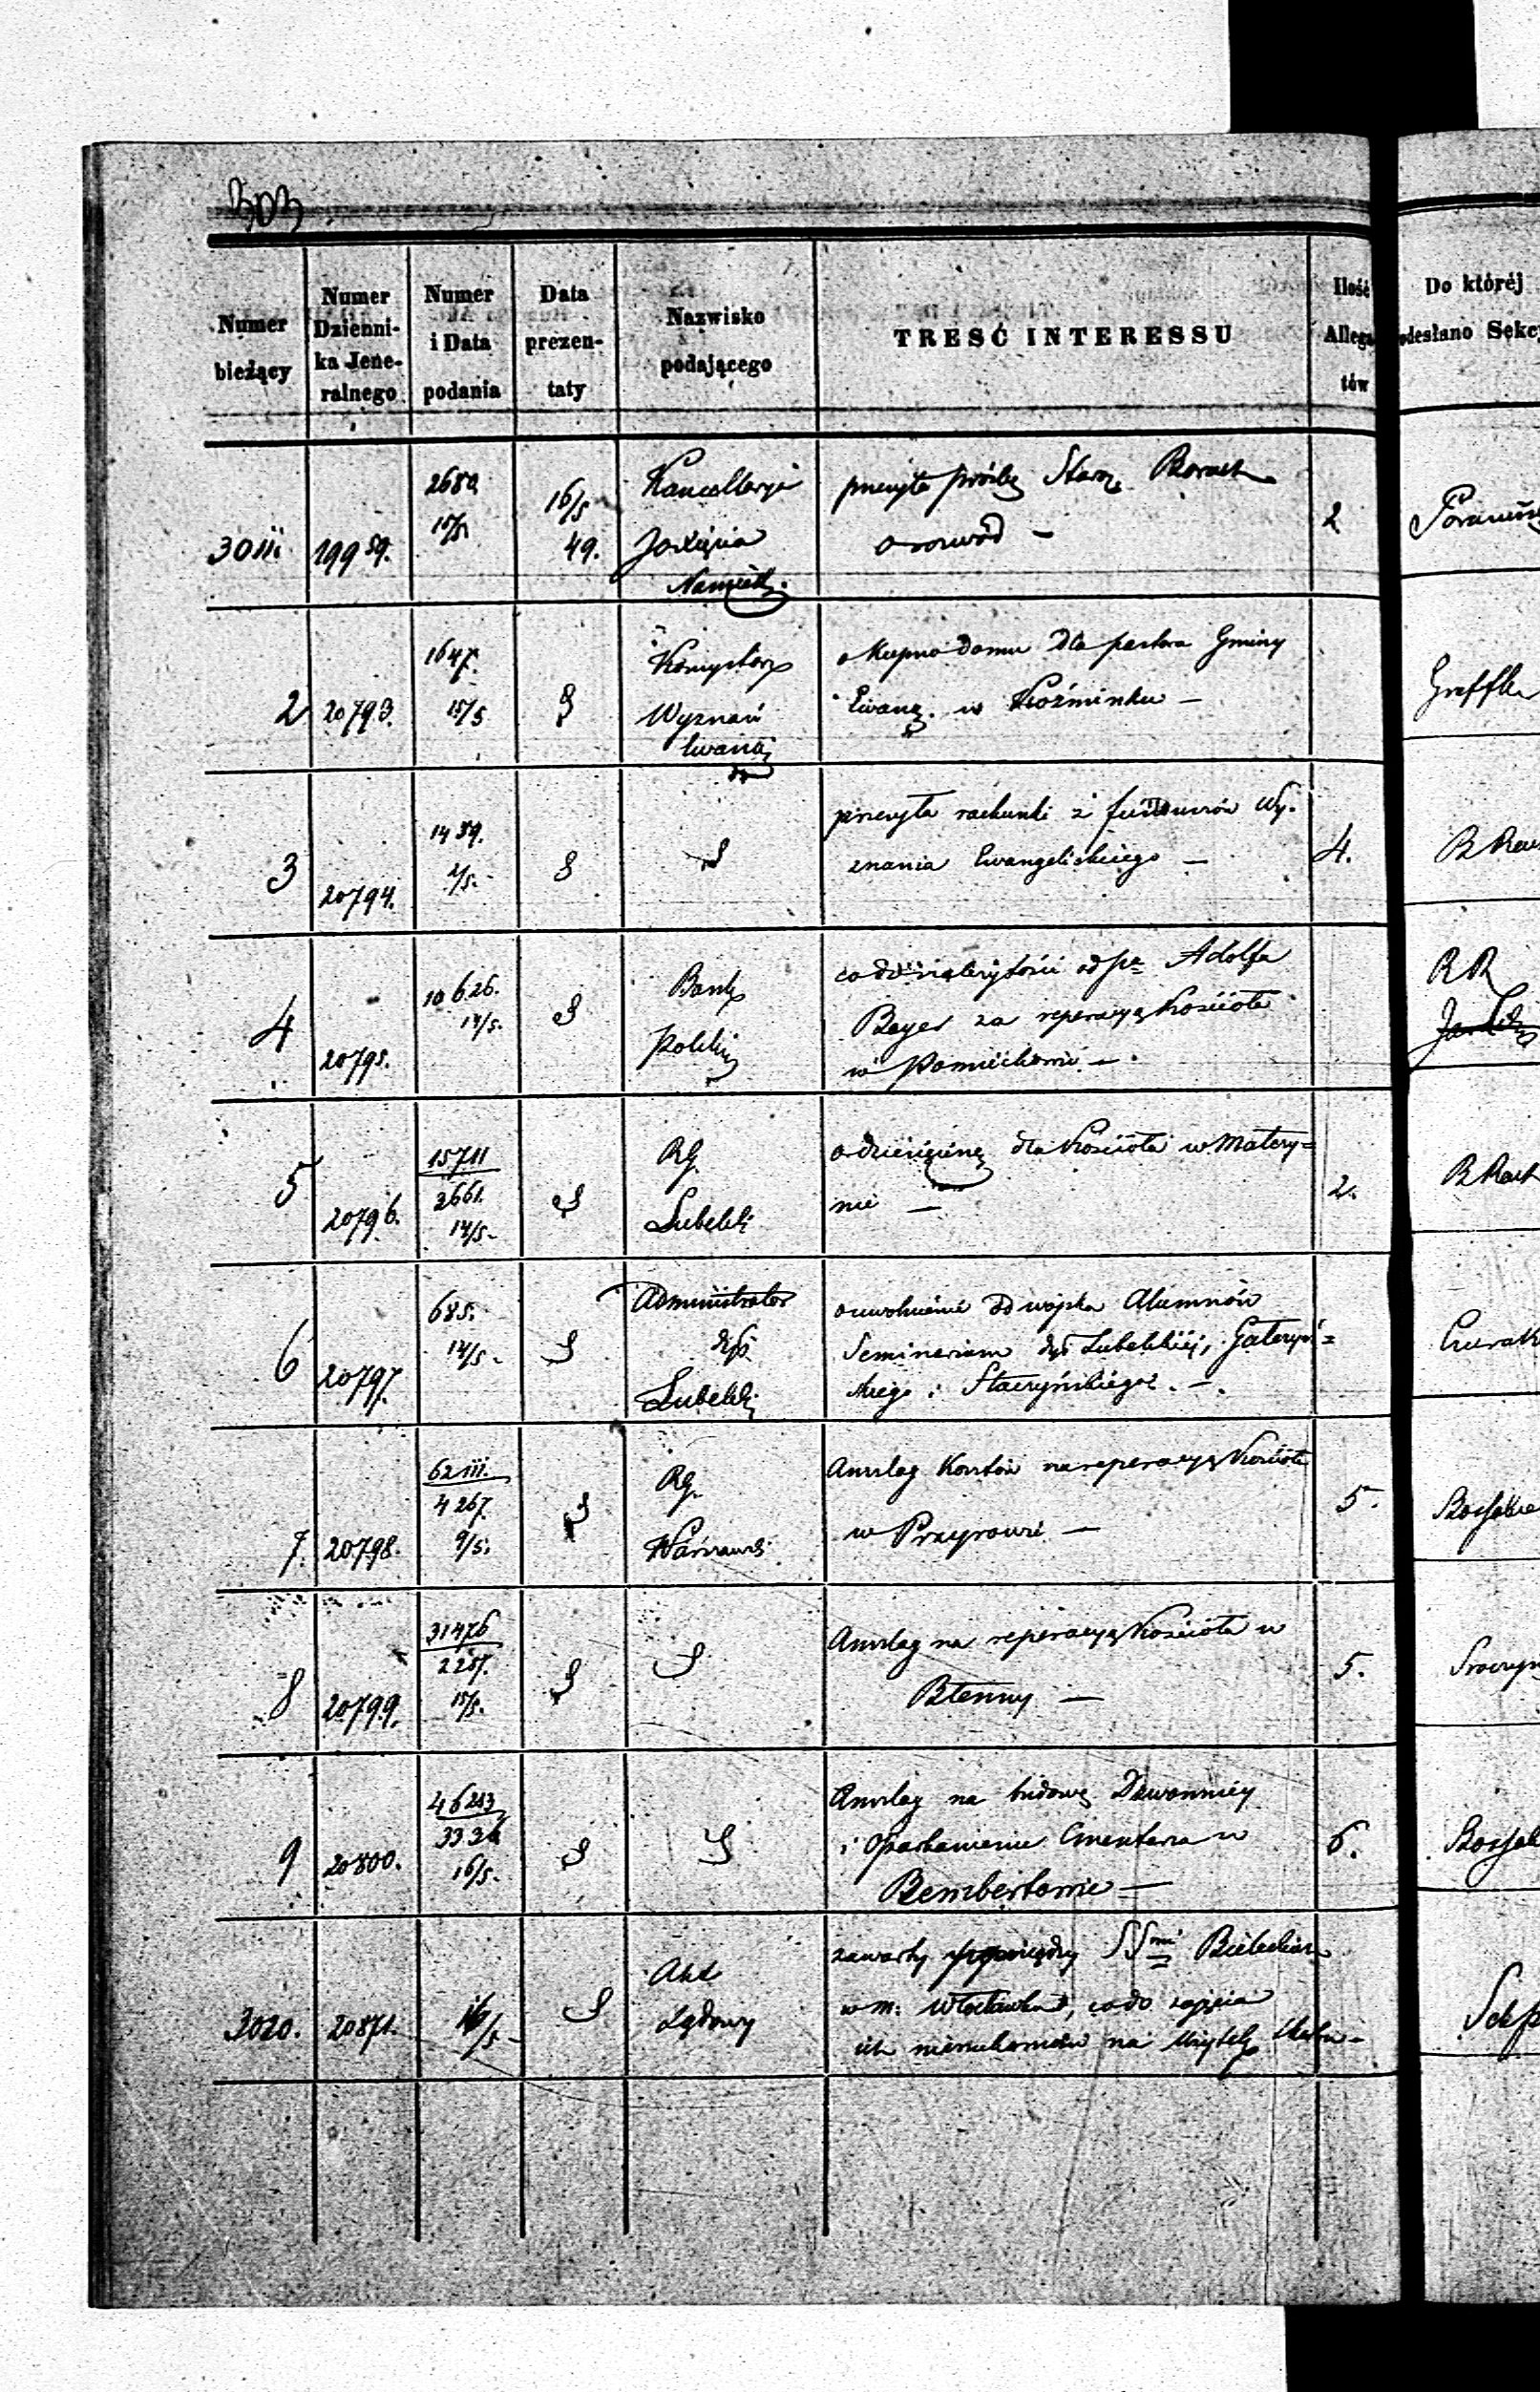 303
Numer bieżący
Numer Dzienni-
ka Jene-
ralnego
Numer i Data podania
Data prezen-
taty
Nazwisko podającego
TREŚĆ INTERESSU
Ilość Allega
tów
Do któréj
odesłano Sekcy
3011. 19959. 2680 15/5 16/5 49.
Kancellarja
JO Xięcia
Namiest.
przesyła prośbę Staroz. Boruch
o rozwód —
2
2 20793. 1647. 15/5 S
Konsystorz
Wyznań
Ewang
o kupno domu dla pastora Gminy
Ewang. w Koźminku —
3 20794. 1439. 2/5. S
S
przesyła rachunki z funduszów Wy-
znania Ewangelickiego —
4.
4 20795. 10626. 14/5. S
Bank
Polski
co do należytości od pa Adolfa
Beyer za reperacyą Kościoła
w Pomiechowie —
R R
5 20796. 15711 3661. 14/5. S
RG
Lubelski
o dziesięcinę dla Kościoła w Matczy=
nie —
2.
6 20797. 685. 14/5. S
Administrator
dyec.
Lubelski
o uwolnienie od wojska Alumnów
Seminarium dyec Lubelskiéj,
skiego i Staczyńskiego. —.
7. 20798. 62111. 4267. 9/5. S
RG.
Warszawski
Anszlag Kosztów na reperacyą Kościoła
w Przyrowie —
5.
8 20799. 31476 2257. 15/5. S
S
Anszlag na reperacyą Kościoła w
Błenny —
5.
9 20800. 46243 3336 16/5. S
S
Anszlag na budowę Dzwonnicy
i Oparkanienie Cmentarza w
Bembertowie —
6.
3020. 20871. 16/5 S
Akt
Lądowy
zawarty pomiędzy SSmi Bieleckich
w m: Włocławku, co do zajęcia
ich nieruchomości na Użytek Skarbu —